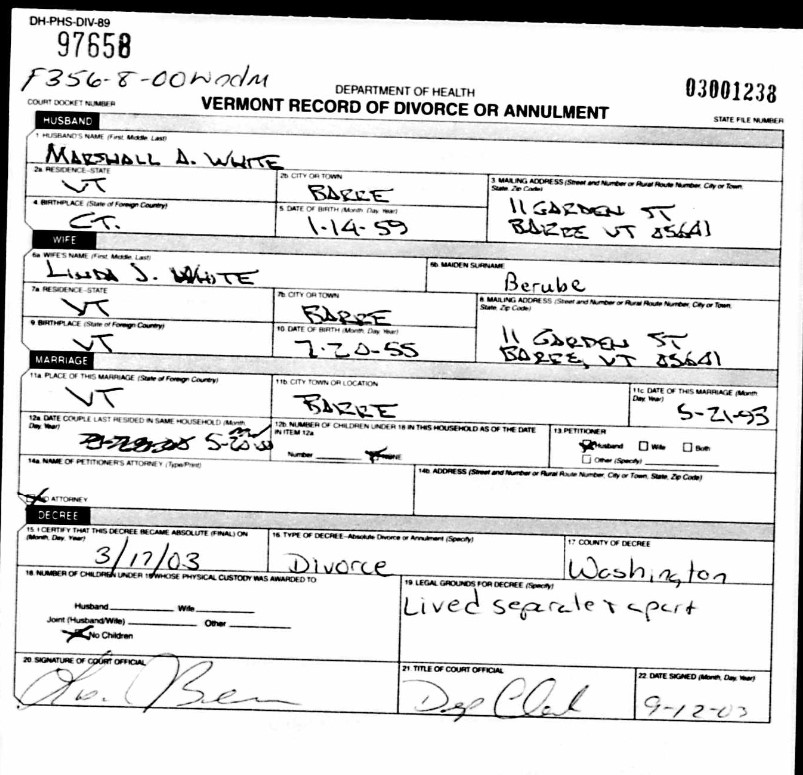 DH-PHS-DIV-89
97658
F356-8-00Wndm
03001238
DEPARTMENT OF HEALTH
COURT DOCKET NUMBER
VERMONT RECORD OF DIVORCE OR ANNULMENT
STATE FILE NUMBER
HUSBAND
1. HUSBAND'S NAME (First, Middle, Last)
MARSHALL A. WHITE
2a. RESIDENCE-STATE
VT
2b. CITY OR TOWN
BARRE
3. MAILING ADDRESS (Street and Number or Rural Route Number, City or Town, State, Zip Code)
11 GARDEN ST
BARRE VT 05641
4. BIRTHPLACE (State of Foreign Country)
CT.
5. DATE OF BIRTH (Month, Day, Year)
1-14-59
WIFE
6a. WIFE'S NAME (First, Middle, Last)
LINDA J. WHITE
6b. MAIDEN SURNAME
Berube
7a. RESIDENCE-STATE
VT
7b. CITY OR TOWN
BARRE
8. MAILING ADDRESS (Street and Number or Rural Route Number, City or Town, State, Zip Code)
11 GARDEN ST
BARRE, VT 05641
9. BIRTHPLACE (State of Foreign Country)
VT
10. DATE OF BIRTH (Month, Day, Year)
7-20-55
MARRIAGE
11a. PLACE OF THIS MARRIAGE (State of Foreign Country)
VT
11b. CITY TOWN OR LOCATION
BARRE
11c. DATE OF THIS MARRIAGE (Month, Day, Year)
5-21-93
12a. DATE COUPLE LAST RESIDED IN SAME HOUSEHOLD (Month, Day, Year)
5-20-
12b. NUMBER OF CHILDREN UNDER 18 IN THIS HOUSEHOLD AS OF THE DATE IN ITEM 12a
Number NONE
13. PETITIONER
Husband Wife Both
Other (Specify)
14a. NAME OF PETITIONER'S ATTORNEY (Type/Print)
NO ATTORNEY
14b. ADDRESS (Street and Number or Rural Route Number, City or Town, State, Zip Code)
DECREE
15. I CERTIFY THAT THIS DECREE BECAME ABSOLUTE (FINAL) ON (Month, Day, Year)
3/17/03
16. TYPE OF DECREE-Absolute Divorce or Annulment (Specify)
Divorce
17. COUNTY OF DECREE
Washington
18. NUMBER OF CHILDREN UNDER 18 WHOSE PHYSICAL CUSTODY WAS AWARDED TO
Husband Wife
Joint (Husband/Wife) Other
No Children
19. LEGAL GROUNDS FOR DECREE (Specify)
Lived separate & apart
20. SIGNATURE OF COURT OFFICIAL
21. TITLE OF COURT OFFICIAL
Dep Clerk
22. DATE SIGNED (Month, Day, Year)
9-12-03